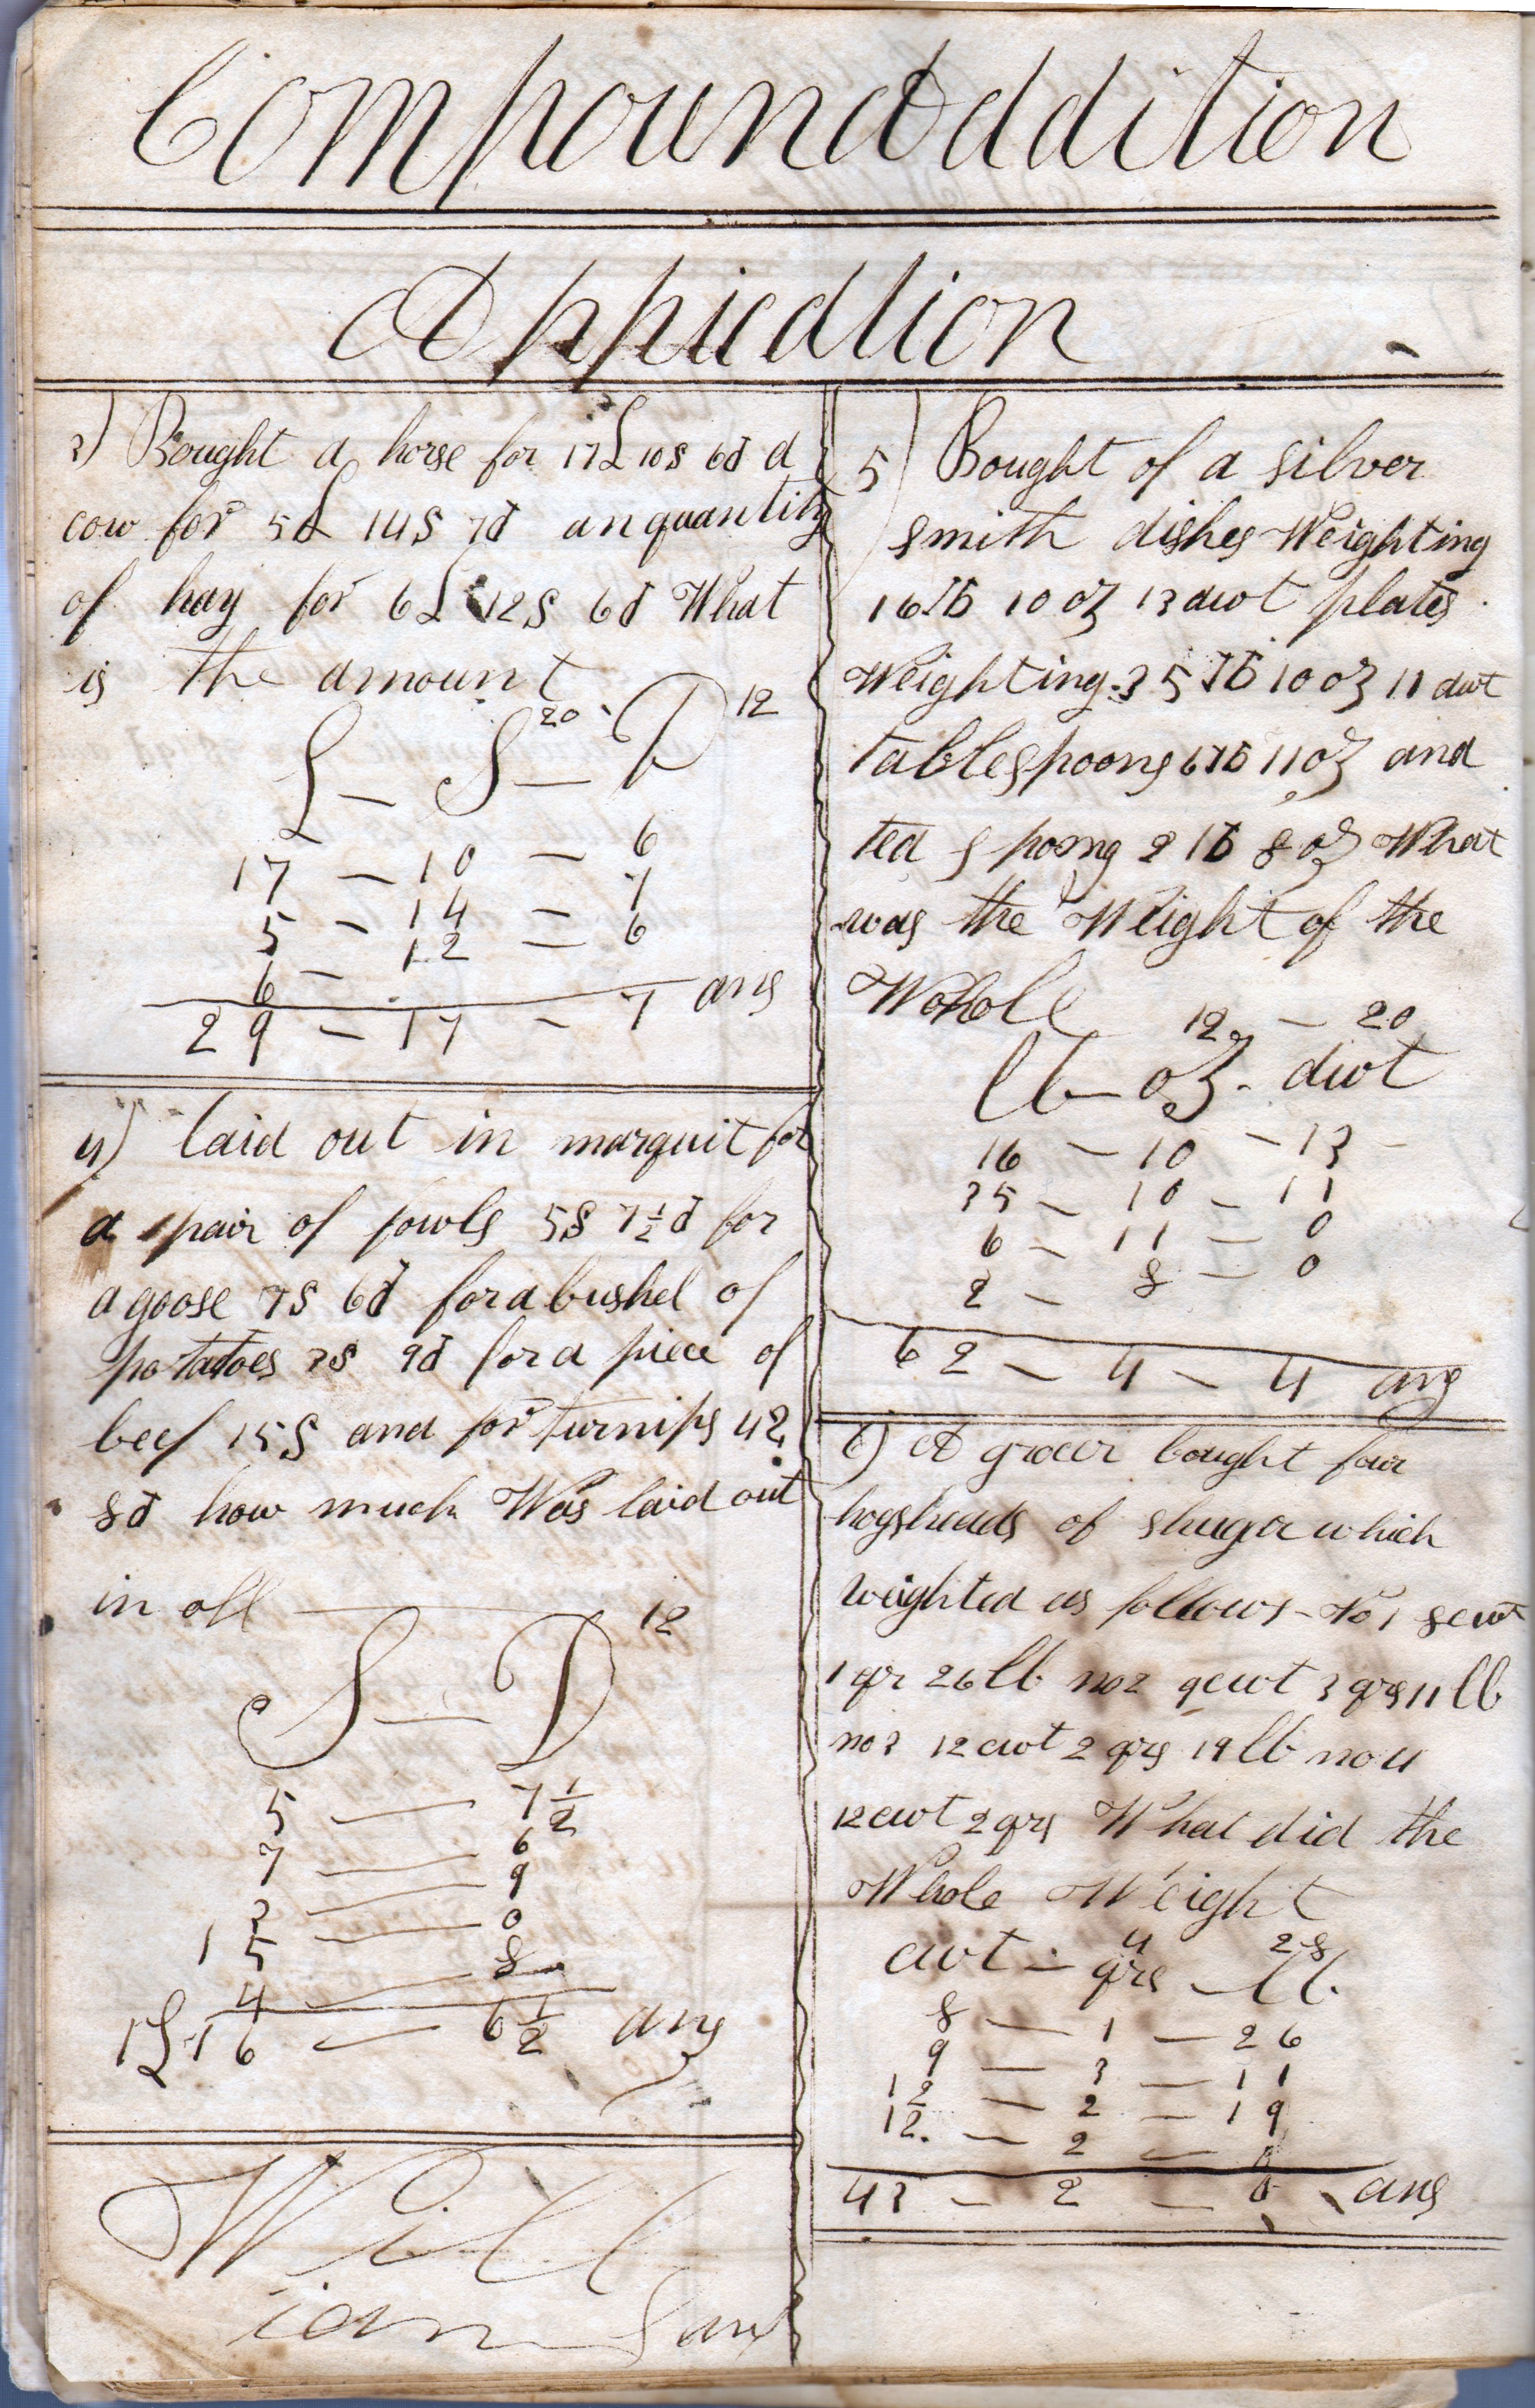 Compound addition
Appication
3) Bought a horse for 17£ 10s 6d a
cow for 5£ 14s 7d an quantity
of hay for 6£ 12s 6d What
is the amount
20 12
£ — S — D
17 — 10 — 6
5 — 14 — 7
6 — 12 — 6
29 — 17 — 7 ans
4) laid out in marquit for
a pair of fowls 5s 7 1/2 d for
a goose 7s 6d for a bushel of
potatoes 3s 9d for a piece of
beef 15s and for turnips 4s
8d how much Was laid out
in all
12
S — D
5 — 7 1/2
7 — 6
3 — 9
15 — 0
4 — 8
1£ 16 — 6 1/2 ans
Will
iam
5) Bought of a silver
smith dishes Weighting
16 lb 10 oz 13 dwt plates
Weighting 35 lb 10 oz 11 dwt
tablespoons 6 lb 11 oz and
tea spoons 2 lb 8 oz What
was the Weight of the
Wohole
12 — 20
lb — oz - dwt
16 — 10 — 13
35 — 10 — 11
6 — 11 — 0
2 — 8 — 0
62 — 4 — 4 ans
6) A grocer bought four
hogsheads of shugar which
weighted as follows - No 1 8 cwt
1 qr 26 lb no 2 9 cwt 3 qrs 11 lb
no 3 12 cwt 2 qrs 19 lb no 4
12 cwt 2 qrs What did the
Whole Weight
4 28
cwt - qrs - lb.
8 — 1 — 26
9 — 3 — 11
12 — 2 — 19
12. — 2 — 0
43 — 2 — 0 ans